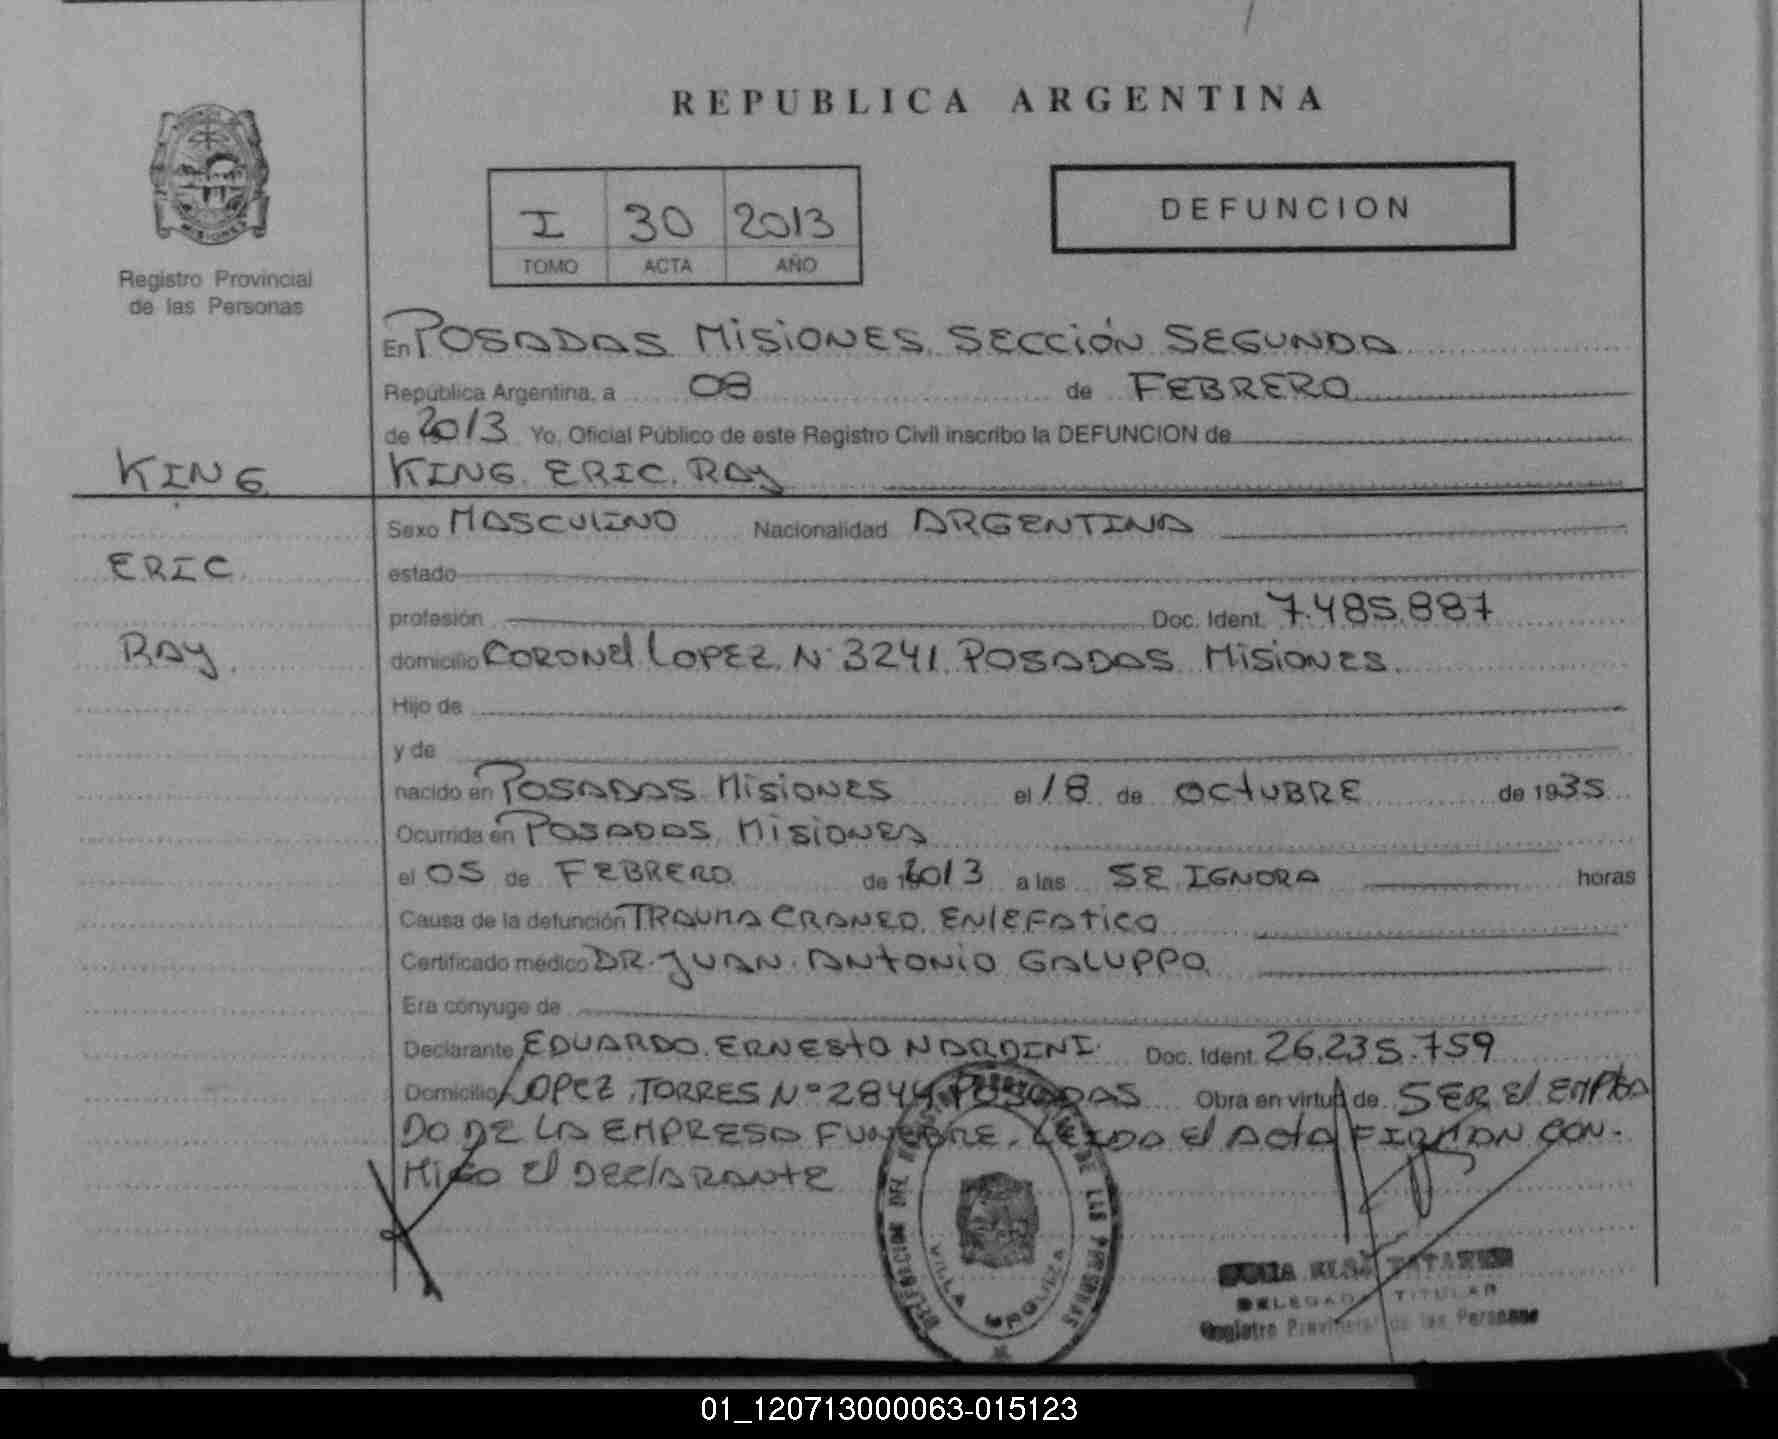 REPUBLICA ARGENTINA
MISIONES
Registro Provincial
de las Personas
I 30 2013
TOMO ACTA AÑO
DEFUNCION
En POSADAS MISIONES SECCIÓN SEGUNDA
República Argentina, a 08 de FEBRERO
de 2013 Yo, Oficial Público de este Registro Civil inscribo la DEFUNCION de
KING KING ERIC RAY
Sexo MASCULINO Nacionalidad ARGENTINA
ERIC
estado
profesión Doc. Ident. 7.485.887
RAY
domicilio CORONEL LOPEZ N° 3241 POSADAS MISIONES
Hijo de
y de
nacido en POSADAS MISIONES el 18 de OCTUBRE de 1935
Ocurrida en POSADAS MISIONES
el 05 de FEBRERO de 2013 a las SE IGNORA horas
Causa de la defunción TRAUMA CRANEO ENLEFATICO
Certificado médico DR. JUAN ANTONIO GALUPPO
Era cónyuge de
Declarante EDUARDO ERNESTO NARDINI Doc. Ident. 26.235.759
Domicilio LOPEZ TORRES N° 2844 POSADAS Obra en virtud de SER EL EMPLEA
DO DE LA EMPRESA FUNEBRE. LEIDA EL ACTA FIRMAN CON-
MIGO EL DECLARANTE
DELEGACION DEL
DE LAS PERSONAS
VILLA URQUIZA
DELEGADA TITULAR
Registro Provincial de las Personas
01_120713000063-015123